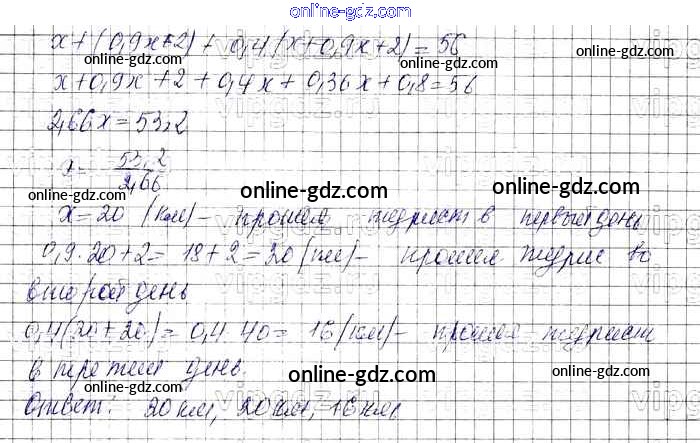 online-gdz.com
x+(0,9x+2)+0,4(x+0,9x+2)=56
x+0,9x+2+0,4x+0,36x+0,8=56
2,66x=53,2
x=53,2/2,66
x=20 (км)- прошел турист в первый день
0,9·20+2=18+2=20(км)- прошел турист во
второй день
0,4(20+20)=0,4·40=16(км)- прошел турист
в третий день.
Ответ: 20км, 20км, 16км.
online-gdz.com
online-gdz.com
online-gdz.com
online-gdz.com
online-gdz.com
online-gdz.com
online-gdz.com
online-gdz.com